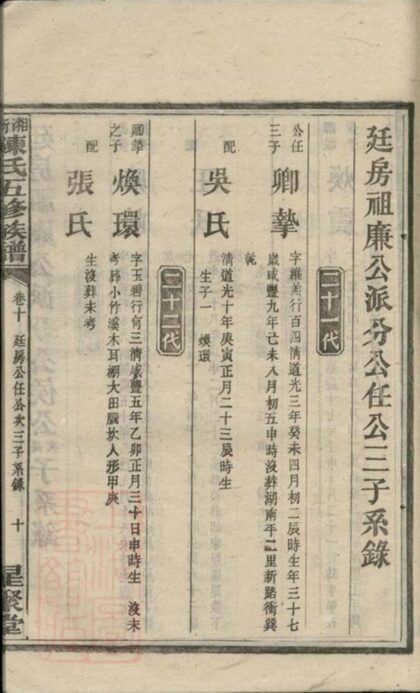 廷房祖廉公派分公任公三子系錄
二十一代
公任三子
卿摯
字維善行百四清道光三年癸未四月初二辰時生年三十七
歲咸豐九年己未八月初五申時沒葬湖南平二里新路衝巽
乾
配
吳氏
清道光十年庚寅正月二十三辰時生
生子一 煥環
二十二代
卿摯之子
煥環
字玉碧行何三清咸豐五年乙卯正月三十日申時生 沒未
考葬小竹溪木耳棚大田腦坎人形甲庚
配
張氏
生沒葬未考
湘衡陳氏五修族譜
卷十 廷房公任公次三子系錄 十
星聚堂